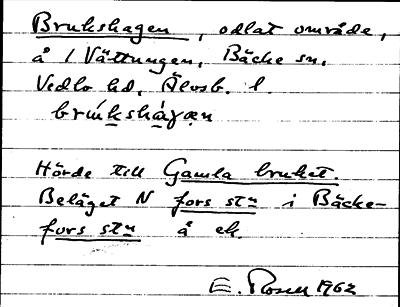 Brukshagen, odlat område,
å 1 Vättungen, Bäcke sn,
Vedbo hd, Älvsb. l.
brúkshàgæn
Hörde till Gamla bruket.
Beläget N fors stn i Bäcke-
fors stn å ek.
E. Rosell 1962